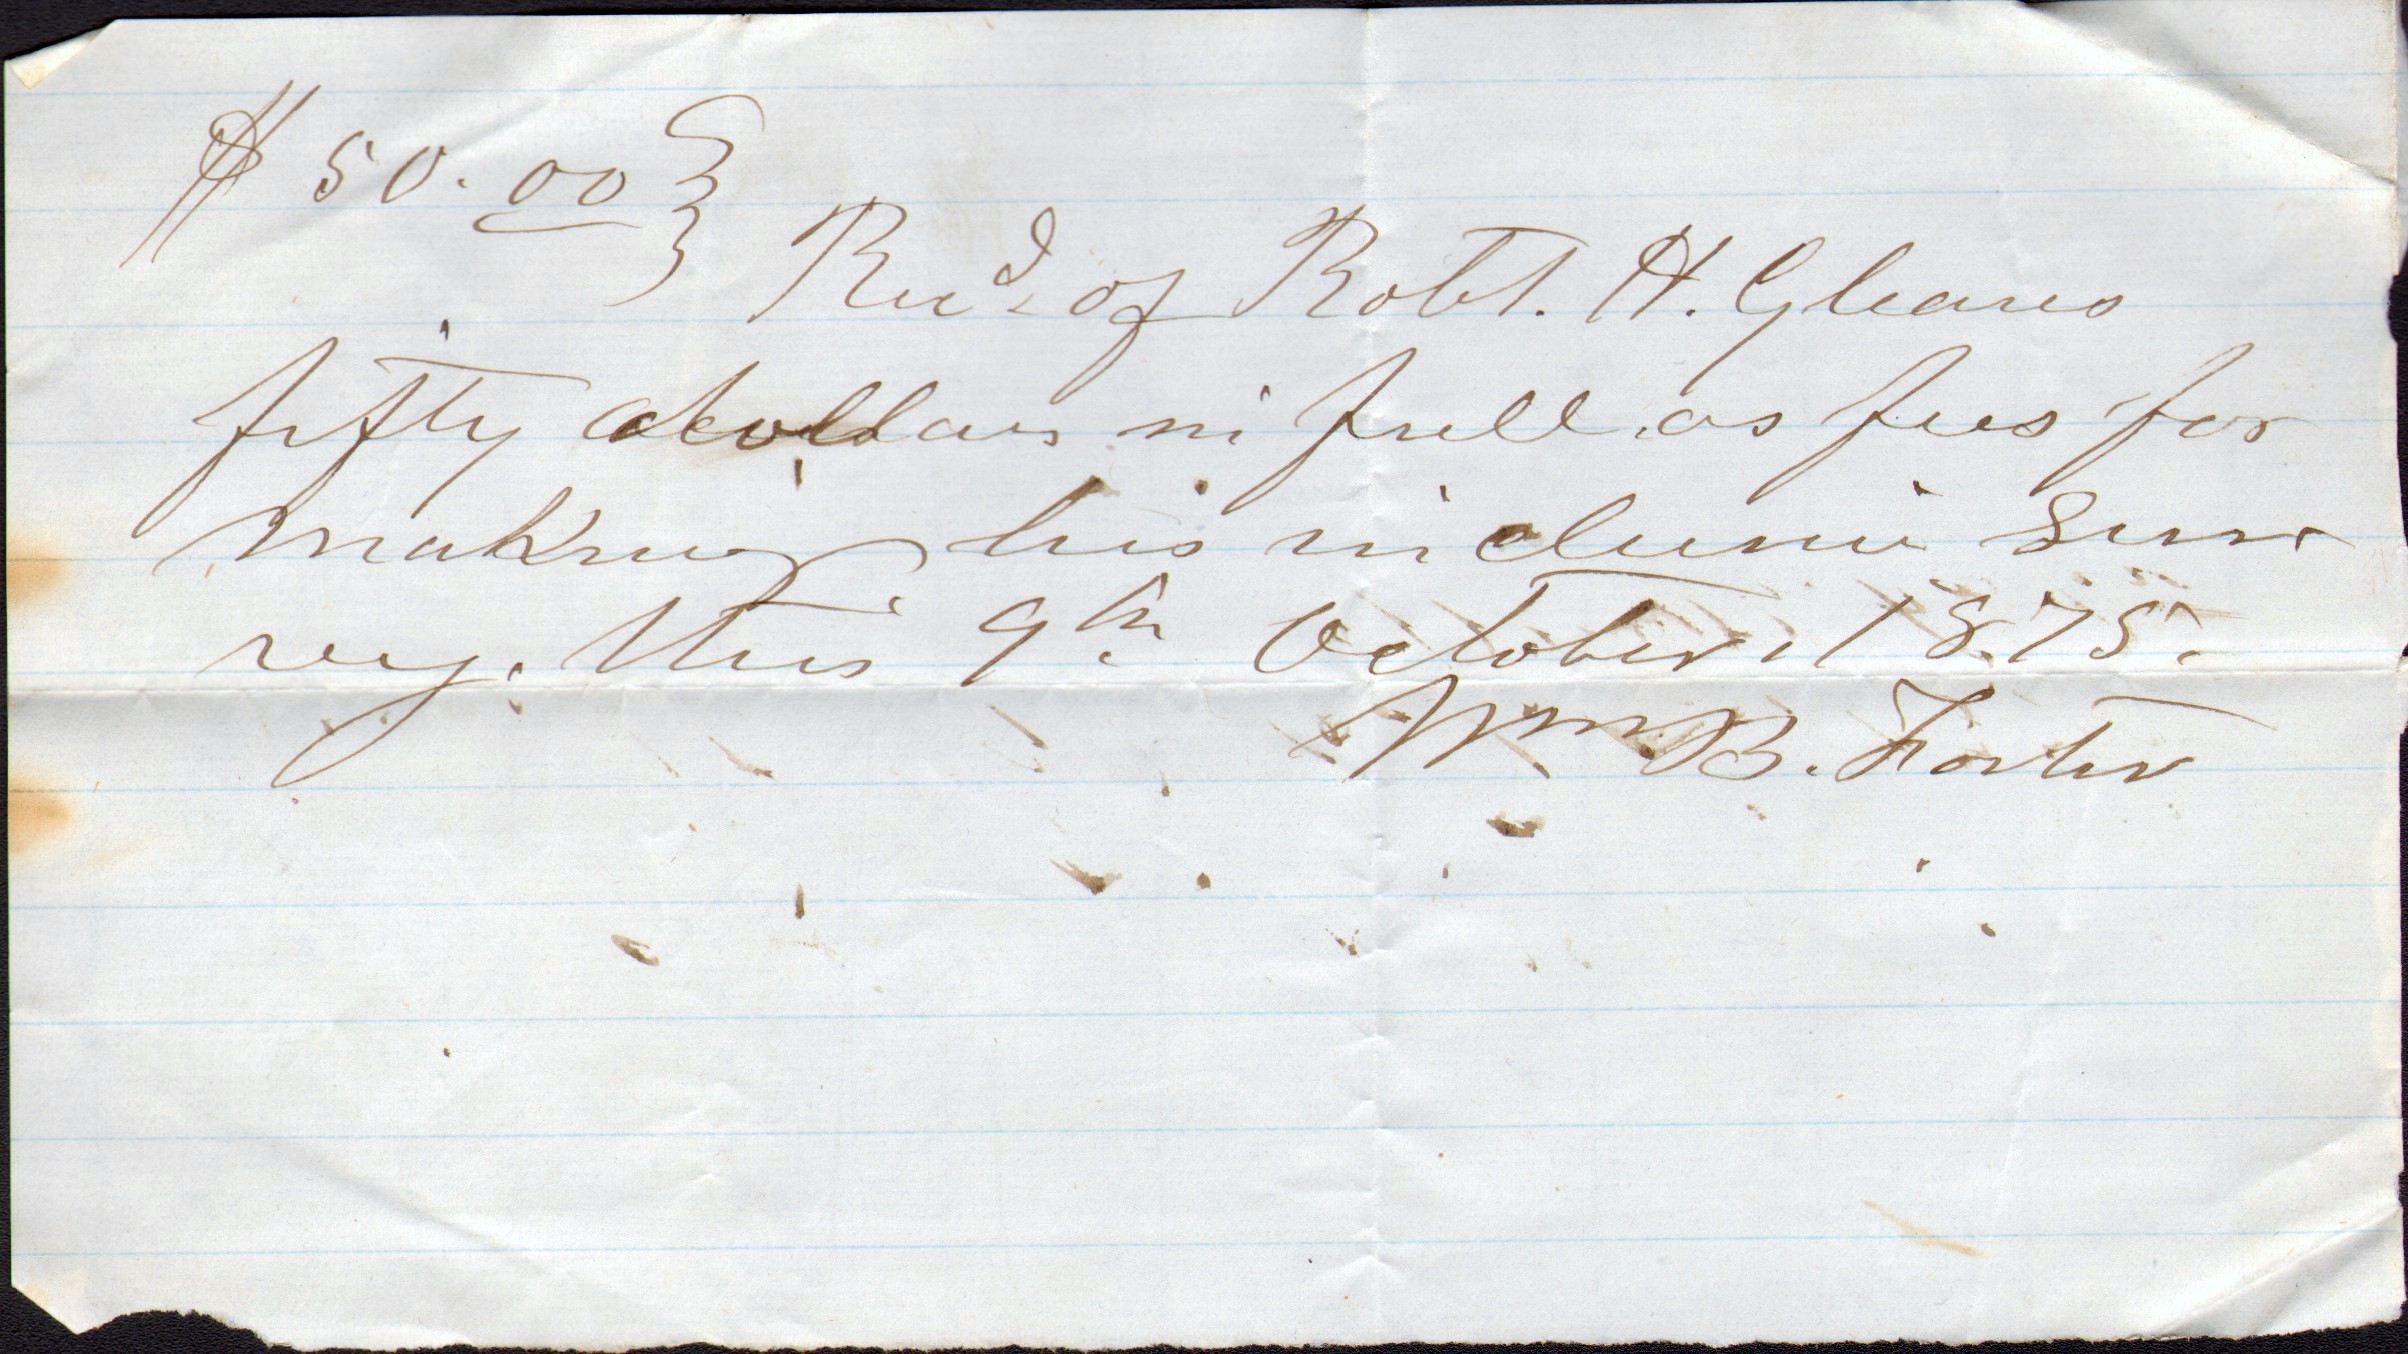 $ 50.00
Recd. of Robt. H. Gleaves
fifty dollars in full as fees for
making his in Sur-
vey. this 9th October, 1875.
Wm B. Foster